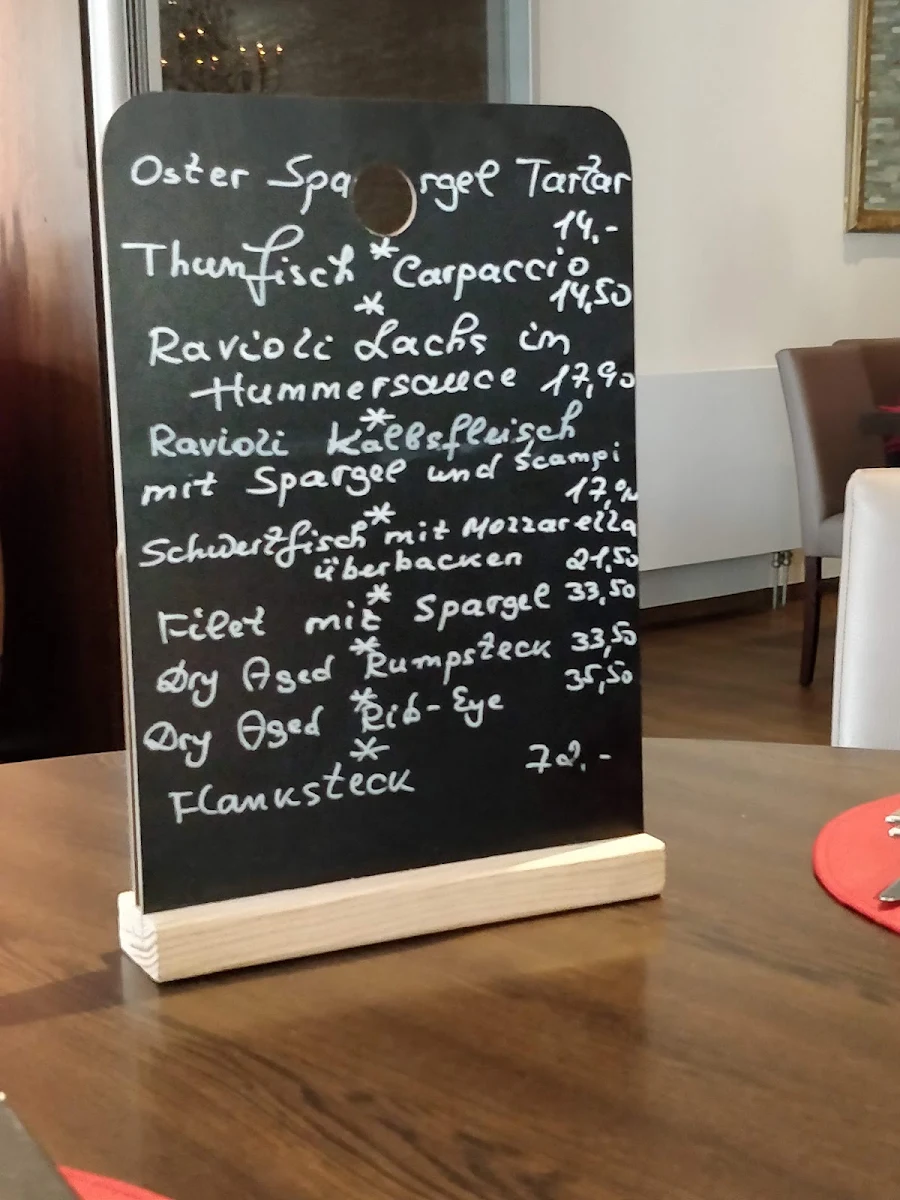 Oster Spargel Tartar
14,-
*
Thunfisch Carpaccio
14,50
*
Ravioli Lachs in
Hummersauce 17,90
*
Ravioli Kalbsfleisch
mit Spargel und Scampi
*
Schwertfisch mit Mozzarella
überbacken 21,50
*
Filet mit Spargel 33,50
*
Dry Aged Rumpsteck 33,50
*
Dry Aged Rib-Eye 35,50
*
Flanksteck 72,-